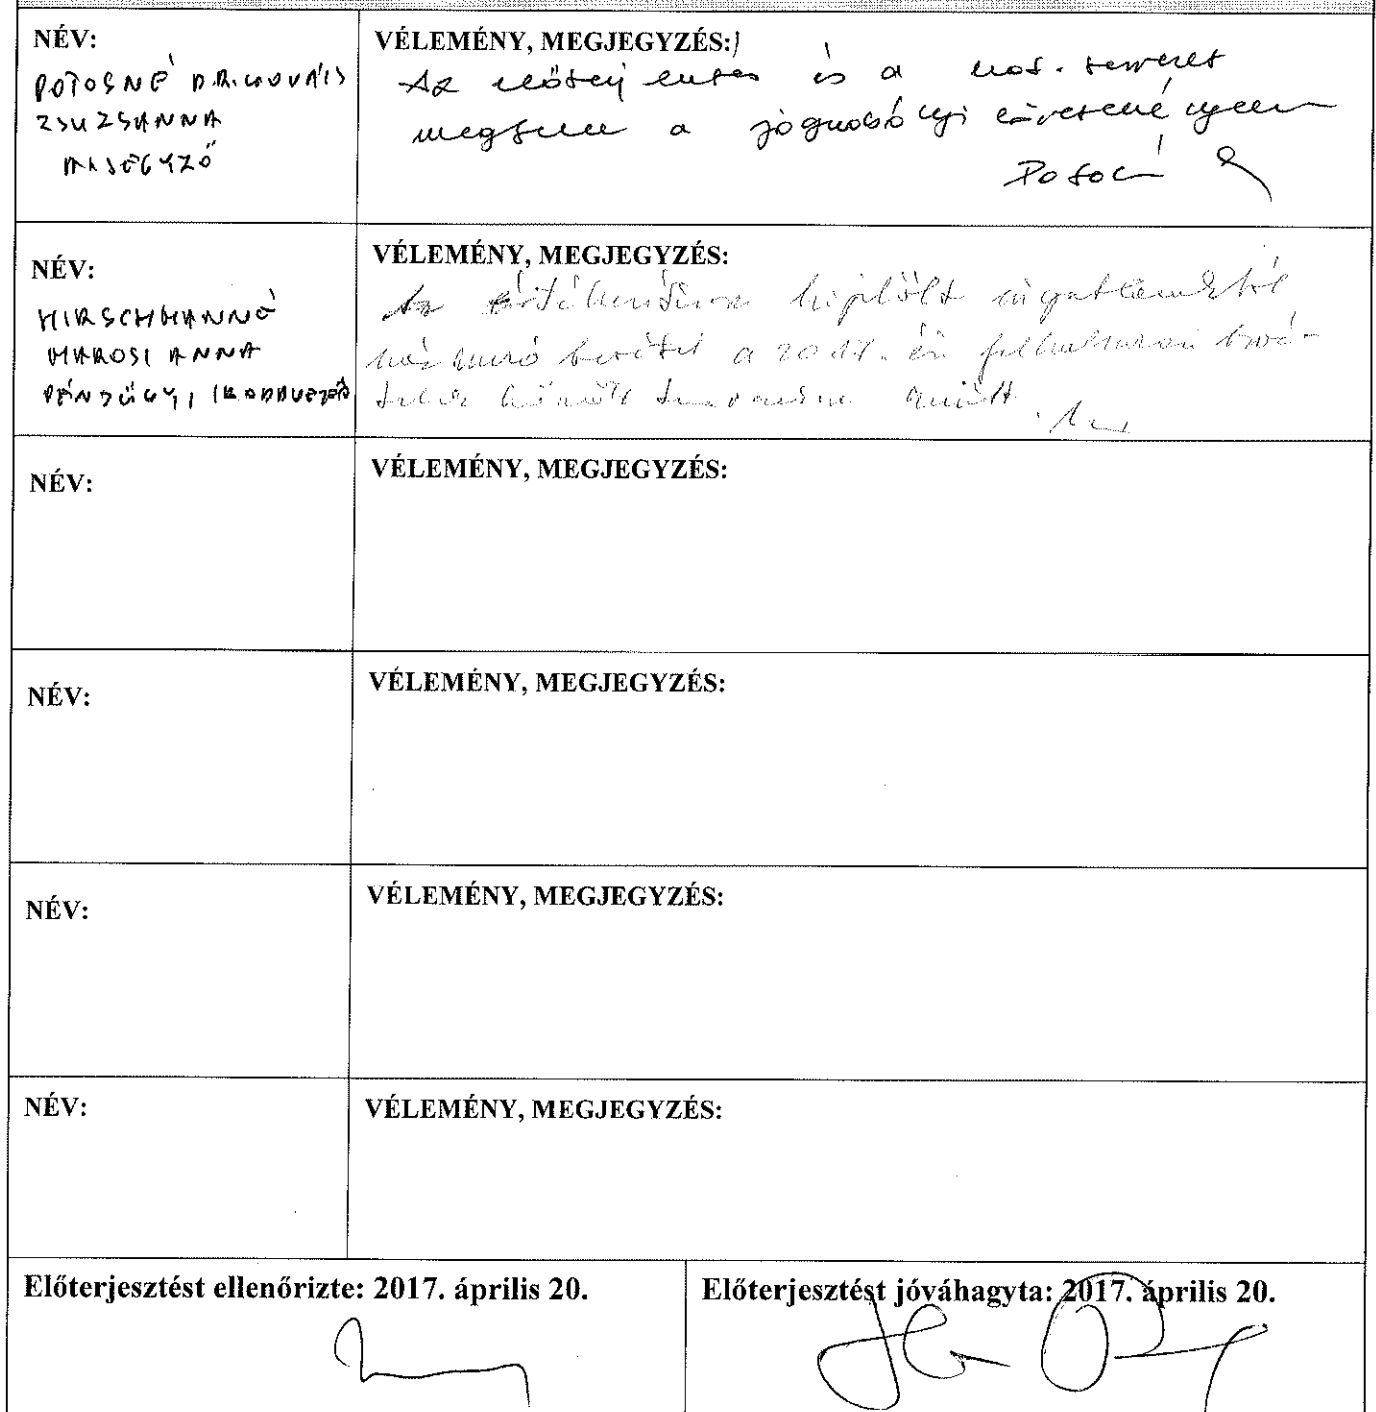 NÉV:
POTOSNÉ DR. KOVÁCS
ZSUZSANNA
ALJEGYZŐ
VÉLEMÉNY, MEGJEGYZÉS:
Az előterjesztés és a hat. tervezet
megfelel a jogszabályi követelményeknek
Potosné
NÉV:
HIRSCHMANNÉ
MAROSI ANNA
PÉNZÜGYI IRODAVEZETŐ
VÉLEMÉNY, MEGJEGYZÉS:
Az értékesítésre kijelölt ingatlanokból
származó bevétel a 2017. évi felhalmozási bevé-
telek között
NÉV:
VÉLEMÉNY, MEGJEGYZÉS:
NÉV:
VÉLEMÉNY, MEGJEGYZÉS:
NÉV:
VÉLEMÉNY, MEGJEGYZÉS:
NÉV:
VÉLEMÉNY, MEGJEGYZÉS:
Előterjesztést ellenőrizte: 2017. április 20.
Előterjesztést jóváhagyta: 2017. április 20.